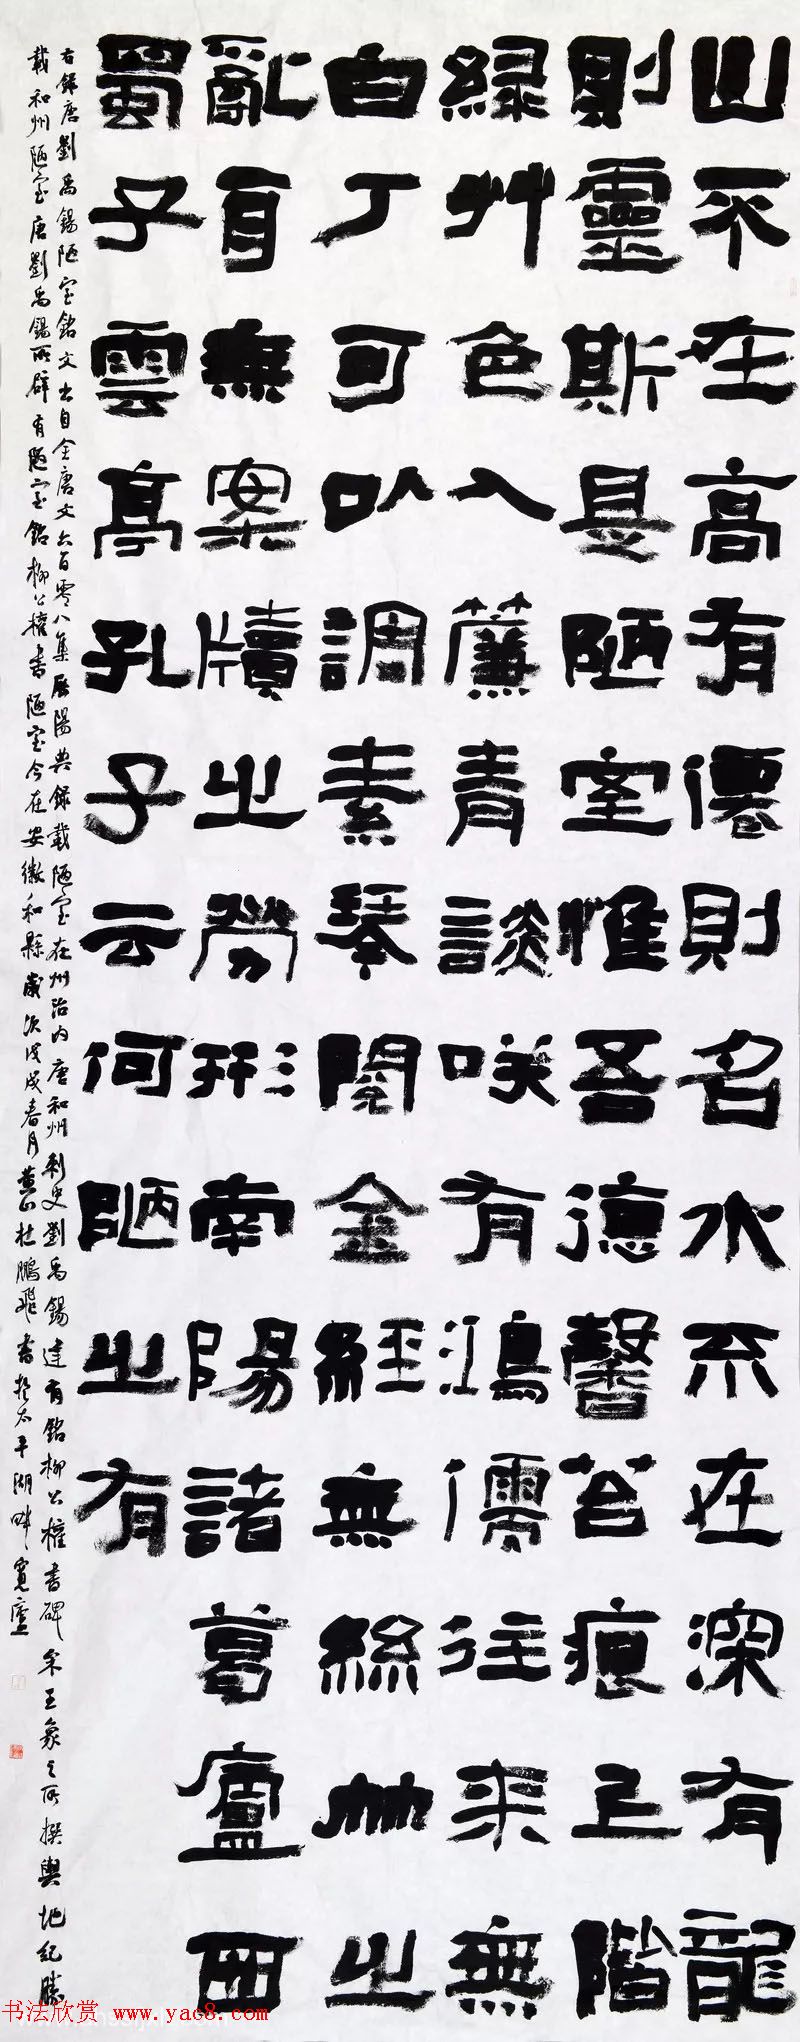 山不在高有德則名水不在深有龍
則靈斯是陋室惟吾德馨苔痕上階
綠艸色入簾青談咲有鴻儒往來無
白丁可以調素琴閱金經無絲竹之
亂耳無案牘之勞形南陽諸葛廬西
蜀子雲亭孔子云何陋之有
右錄唐劉禹錫陋室銘文出自全唐文六百零八集歷陽典錄載陋室在州治內唐和州刺史劉禹錫建有銘柳公權書碑宋王象之所撰輿地紀勝
載和州陋室唐劉禹錫所辟有陋室銘柳公權書陋室今在安徽和縣歲次戊戌春月黃山杜鵬飛書於太平湖畔寬廬
书法欣赏 www.yac8.com